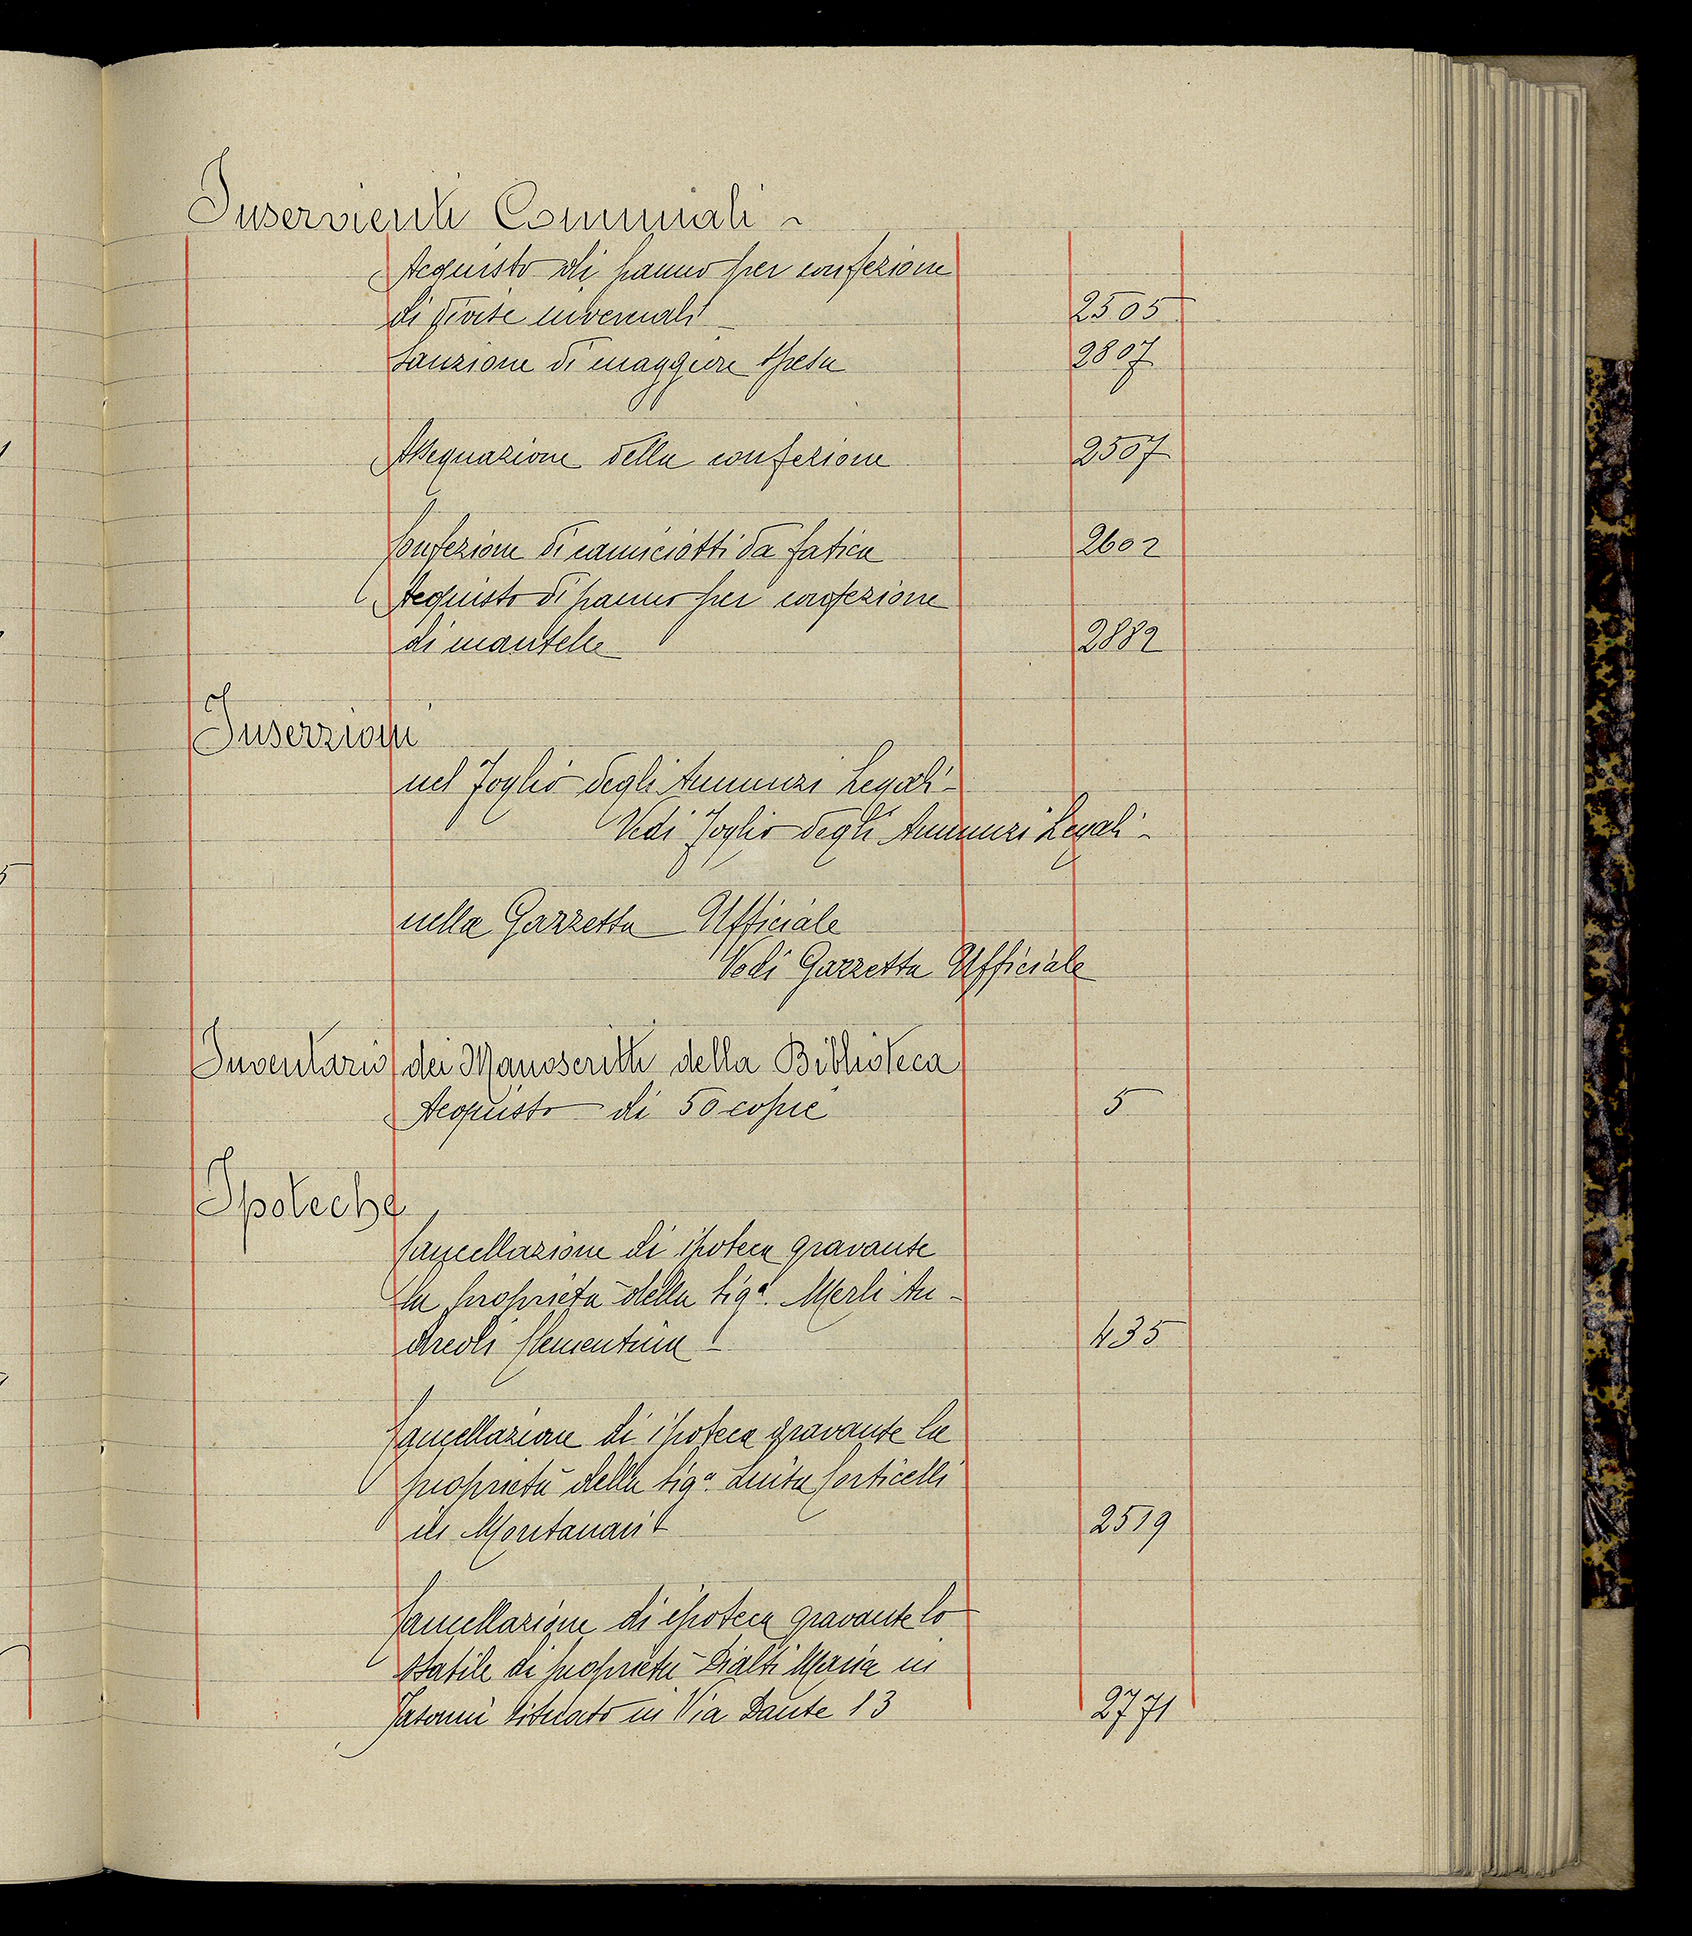 Inservienti Comunali -
Acquisto di panno per confezione
di divise invernali 2505
Sanzione di maggiore spesa 2807
Assegnazione della confezione 2507
Confezione di camiciotti da fatica 2602
Acquisto di panno per confezione
di mantelle 2882
Inserzioni
nel Foglio degli Annunzi Legali -
Vedi Foglio degli Annunzi Legali -
nella Gazzetta Ufficiale
Vedi Gazzetta Ufficiale
Inventario dei Manoscritti della Biblioteca
Acquisto di 50 copie 5
Ipoteche
Cancellazione di ipoteca gravante
la proprietà della Sigª. Merli An-
dreoli Clementina - 435
Cancellazione di ipoteca gravante la
proprietà della Sigª. Luisa Corticelli
in Montanari 2519
Cancellazione di ipoteca gravante lo
stabile di proprietà Dialti Maria in
situato in Via Dante 13 2771